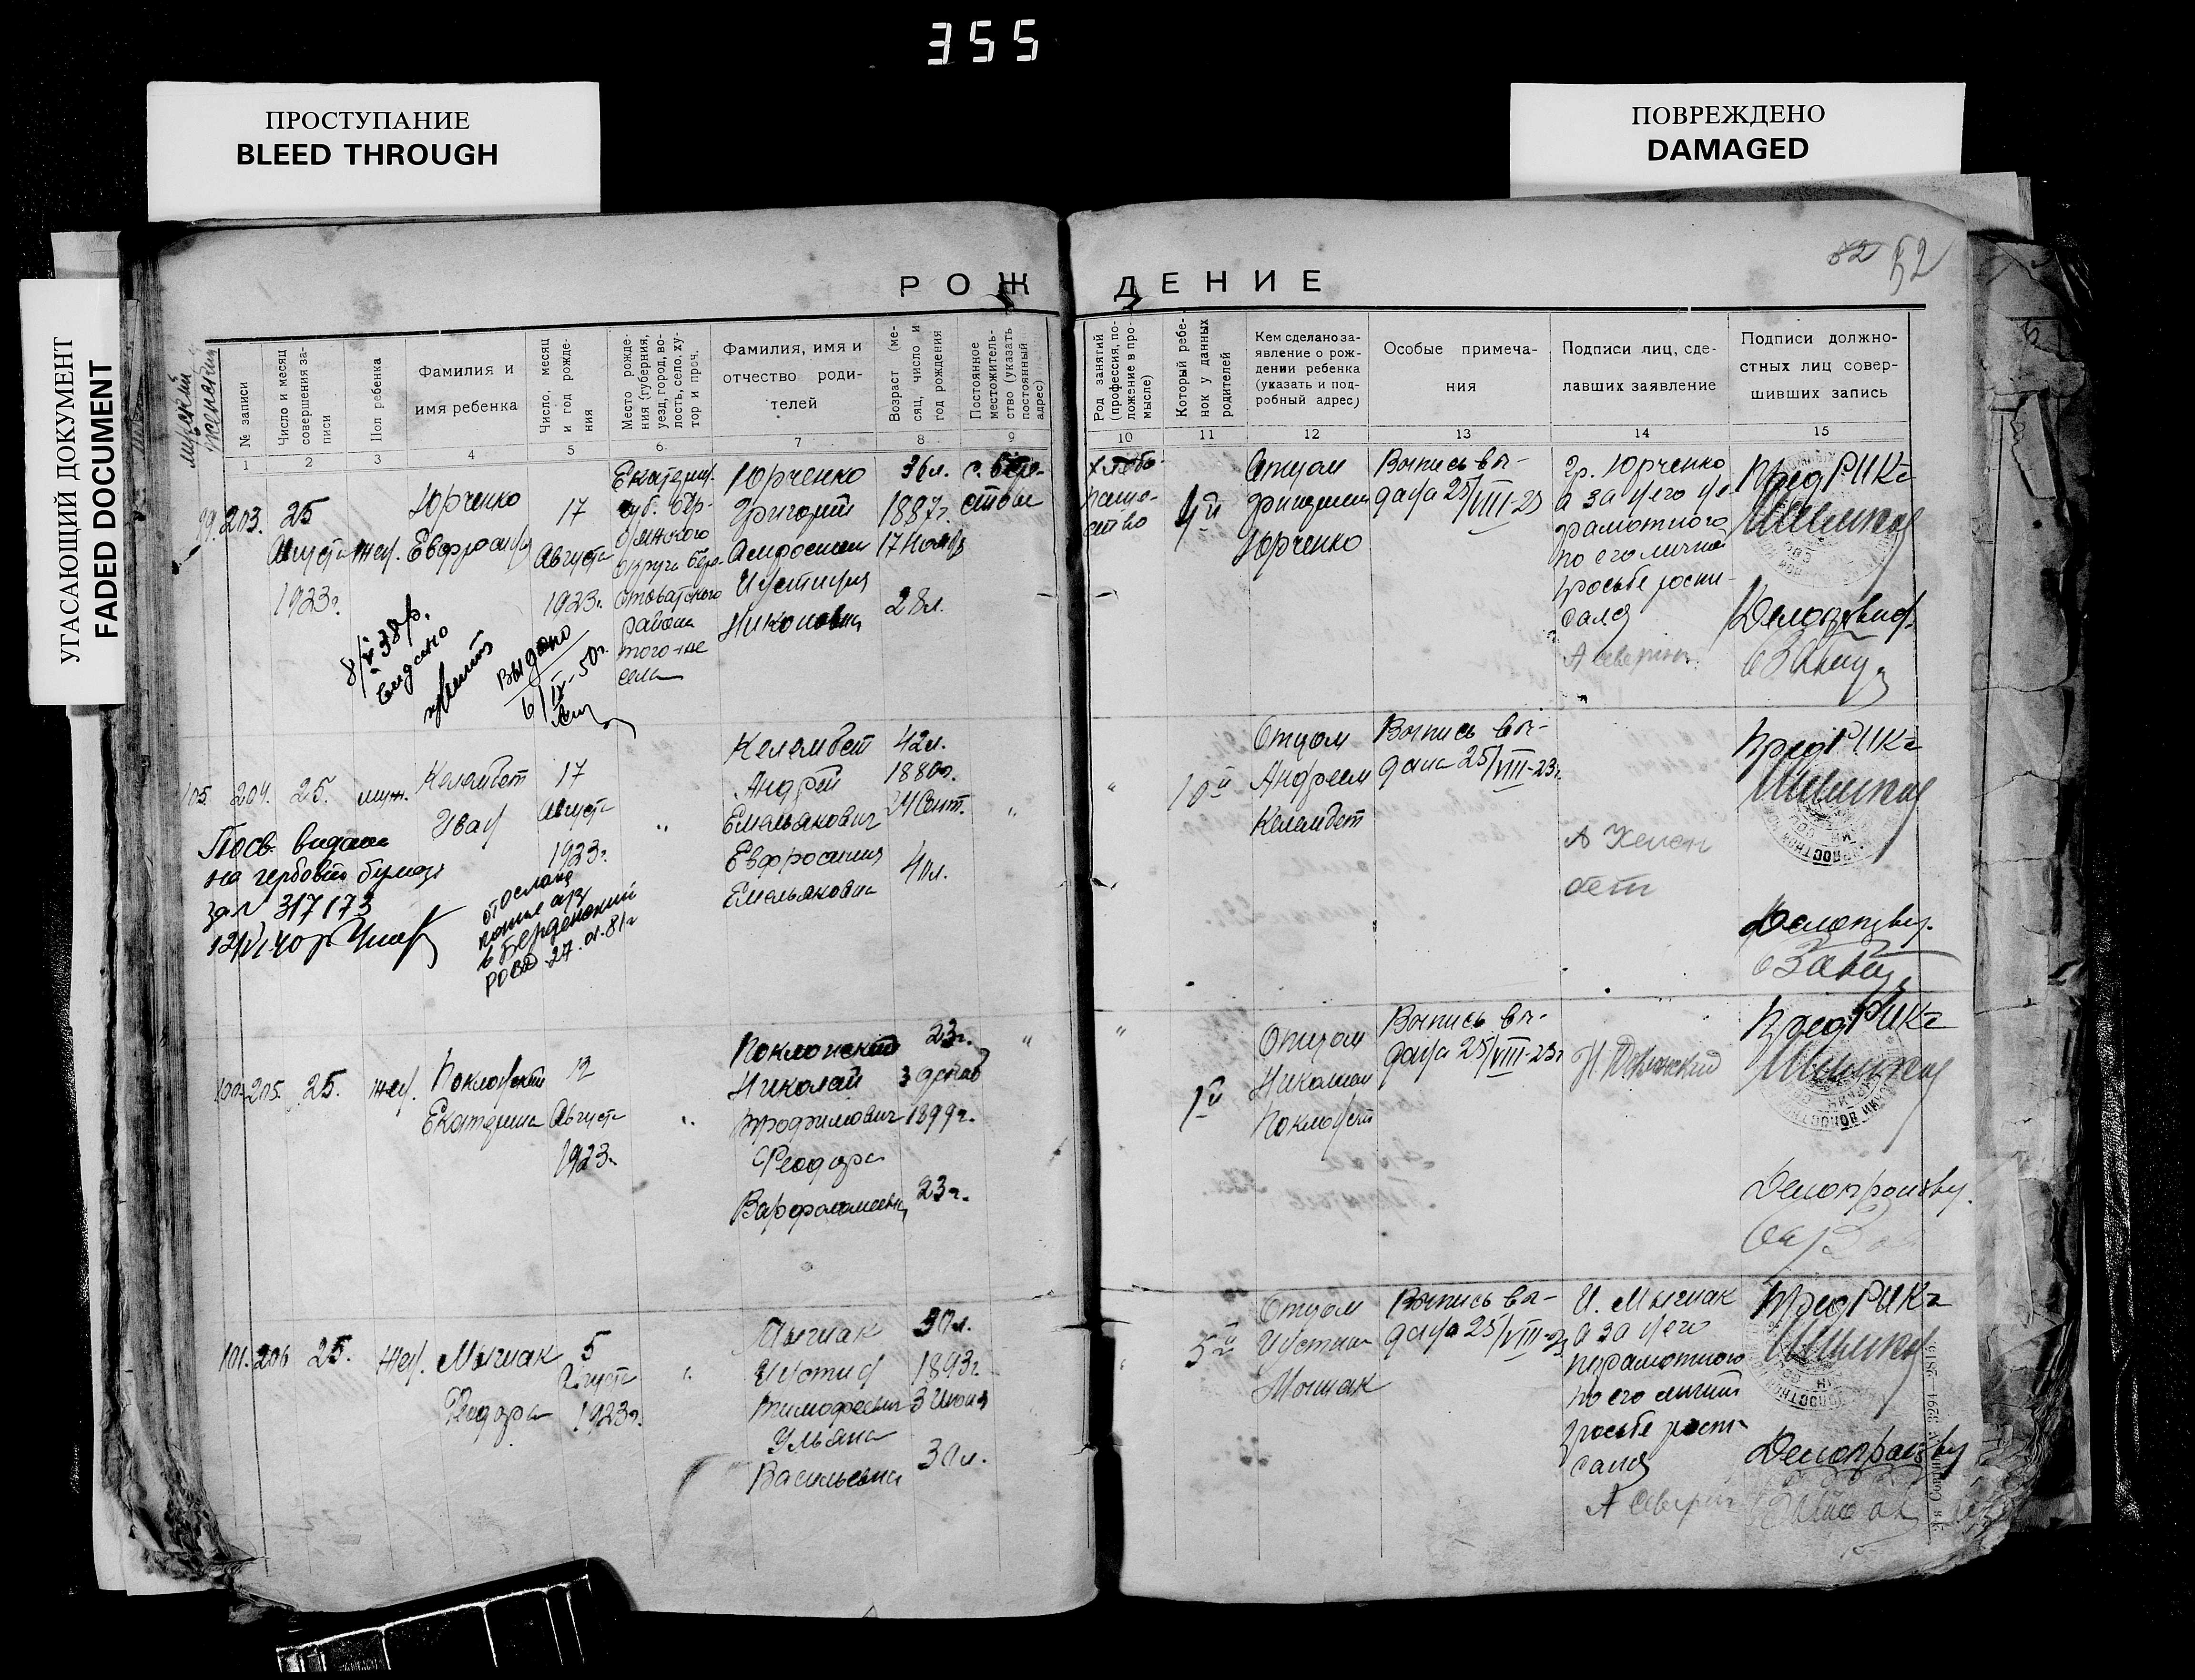 355
ПРОСТУПАНИЕ
BLEED THROUGH
ПОВРЕЖДЕНО
DAMAGED
УГАСАЮЩИЙ ДОКУМЕНТ
FADED DOCUMENT
52 52
РОЖДЕНИЕ
мужский
женский
№ записи
Число и месяц совершения записи
Пол ребенка
Фамилия и
имя ребенка
Число, месяц и год рождения
Место рождения (губерния, уезд, город, волость, село, хутор и проч.
Фамилия, имя и
отчество роди-
телей
Возраст (месяц, число и год рождения
Постоянное местожительство (указать постоянный адрес)
Род занятий (профессия, положение в промысле)
Который ребенок у данных родителей
Кем сделано за-
явление о рож-
дении ребенка
(указать и под-
робный адрес)
Особые примеча-
ния
Подписи лиц, сде-
лавших заявление
Подписи должно-
стных лиц совер-
шивших запись
1 2 3 4 5 6. 7 8 9 10 11 12 13 14 15
99. 203.
25
Августа
1923г.
жен.
Юрченко
Евфросиня
17
Августа
1923г.
Екатерин.
губ. Бер-
дянского
округа Бере-
стоватского
района
того-же
села
Юрченко
Григорий
Амвросиев
Иустиния
Никоновна
36л.
1887г.
17 Нояб
28л.
с. Бере-
стовое
хлебо-
паше-
ство
4й
Отцом
Григорием
Юрченко
Выпись вы-
дана 25/VIII-23
Гр. Юрченко
а за него не-
грамотного
по его личной
просьбе роспи-
сался
ПредРИКа
Делопроизв.
8/X 38р.
видано
Выдано
6/IX-50г.
105. 204. 25. муж.
Келембет
Иван
17
Августа
1923г.
"
Келембет
Андрей
Емельянович
Евфросиния
Емельяновна
42л.
1880г.
24 Сент.
40л.
"
"
10й
Отцом
Андреем
Келембет
Выпись вы-
дана 25/VIII-23г.
А Келем
бет
ПредРИКа
Делопроизв.
Посв. видано
на гербовой бумазі
за № 317173
отослана
копия а/з
в Бердянский
РОВД 27.01.81г
100. 205. 25. жен.
Поклонский
Екатерина
12
Августа
1923г.
"
Поклонский
Николай
Трофимович
Феодора
Варфоломеевна
23г.
1899г.
23г.
"
"
1й
Отцом
Николаем
Поклонский
Выпись вы-
дана 25/VIII-23г
ПредРИКа
Делопроизв.
101. 206 25. жен.
Мычак
Феодора
5
Августа
1923г.
"
Мычак
Иустин
Тимофеевич
Ульяна
Васильевна
30л.
1893г.
3 Июня
30л.
5й
Отцом
Иустин
Мычак
Выпись вы-
дана 25/VIII-23
И. Мычак
а за него
неграмотного
по его личной
просьбе роспи-
сался
ПредРИКа
Делопроизв